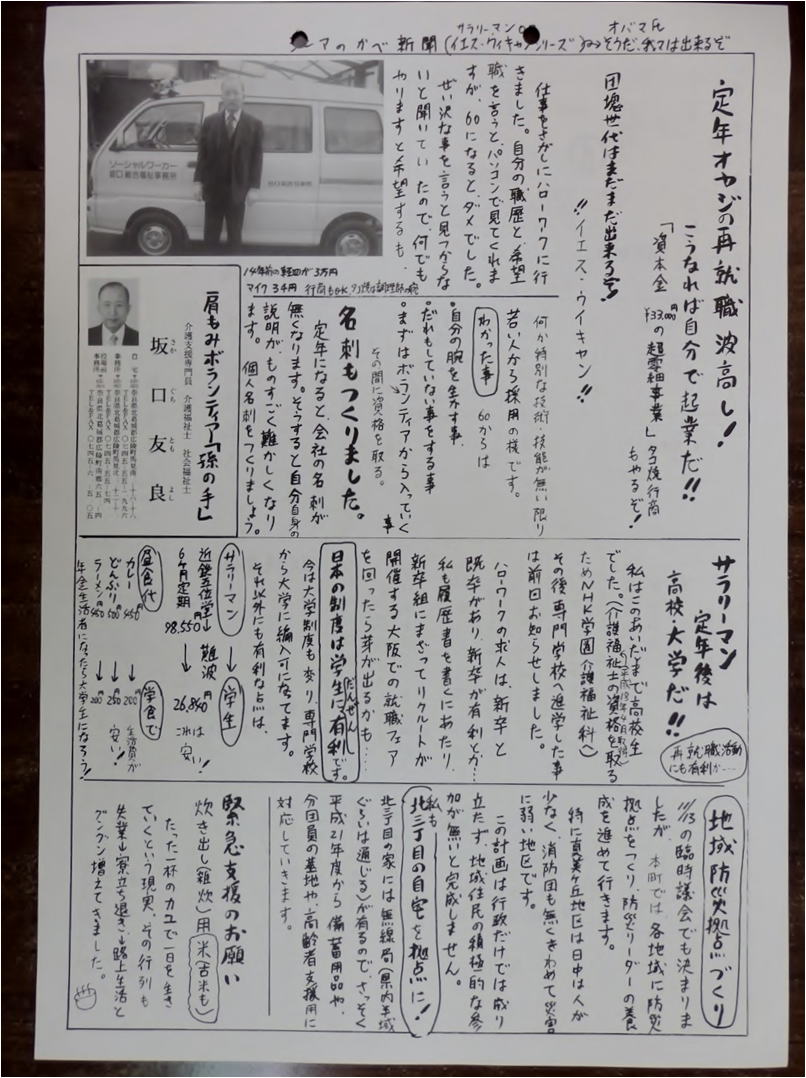 サラリーマンOB
オバマ氏
アのかべ新聞(イエス・ウィキャンシリーズ)そうだ、我々は出来るぞ
定年オヤジの再就職波高し!
こうなれば自分で起業だ!!
「資本金¥33,000円の超零細事業」タコ焼行商
もやるぞ!
団塊世代はまだまだ出来るぞ!
!!イエス・ウイキャン!!
仕事をさがしにハローワークに行
きました。自分の職歴と、希望
職を言うと、パソコンで見てくれま
すが、60になるとダメでした。
ぜい沢な事を言うと見つからな
いと聞いていたので、何でも
やりますと希望するも、
何か特別な技術・技能が無い限り
若い人から採用の様です。
わかった事
60からは
・自分の腕を生かす事、
・だれもしていない事をする事
・まずはボランティアから入っていく
事
その間に資格を取る。
名刺もつくりました。
定年になると、会社の名刺が
無くなります。そうすると自分自身の
説明が、ものすごく難かしくなり
ます。個人名刺をつくりましょう。
ソーシャルワーカー
坂口総合福祉事務所
14年前の軽四が3万円
マイク34円 行商もOK
肩もみボランティア「孫の手」
介護支援専門員 介護福祉士 社会福祉士
坂口友良
さか ぐち とも よし
サラリーマン
定年後は
高校・大学だ!!
再就職活動
にも有利か…
私はこのあいだまで高校生
でした。(介護福祉士の資格を取る
(平成18年4月取得)
ためNHK学園介護福祉科へ)
その後専門学校へ進学した事
は前回お知らせしました。
ハローワークの求人は、新卒と
既卒があり、新卒が有利とか…
私も履歴書を書くにあたり、
新卒組にまざってリクルートが
開催する大阪での就職フェア
を回ったら芽が出るかも…
日本の制度は学生にだんぜん有利です。
今は大学制度も変り、専門学校
から大学に編入可になってます。
それ以外にも有利な点は、
サラリーマン→学生
近鉄五位堂→難波
6ヶ月定期
98,550円→26,840円
これは
安い!
昼食代→学食で
カレー 450→200円
どんぶり 500円→250円
ラーメン 450→200円
生活費が
安い!
年金生活者になったら大学生になろう!
地域防災拠点づくり
11/13の臨時議会でも決まりま
したが、本町では、各地域に防災
拠点をつくり、防災リーダーの養
成を進めて行きます。
特に真美ヶ丘地区は日中は人が
少なく、消防団も無くきわめて災害
に弱い地区です。
この計画は行政だけでは成り
立たず、地域住民の積極的な参
加が無いと完成しません。
私も
北三丁目の自宅を拠点に!
北三丁目の家には無線局(県内全域
ぐらいは通じる)が有るので、さっそく
平成21年度から備蓄用品や、
分団員の基地や、高齢者支援用に
対応していきます。
緊急支援のお願い
炊き出し(雑炊)用米(古米も)
たった一杯のカユで一日を生き
ていくという現実、その行列も
失業→寮立ち退き→路上生活と
グングン増えてきました。